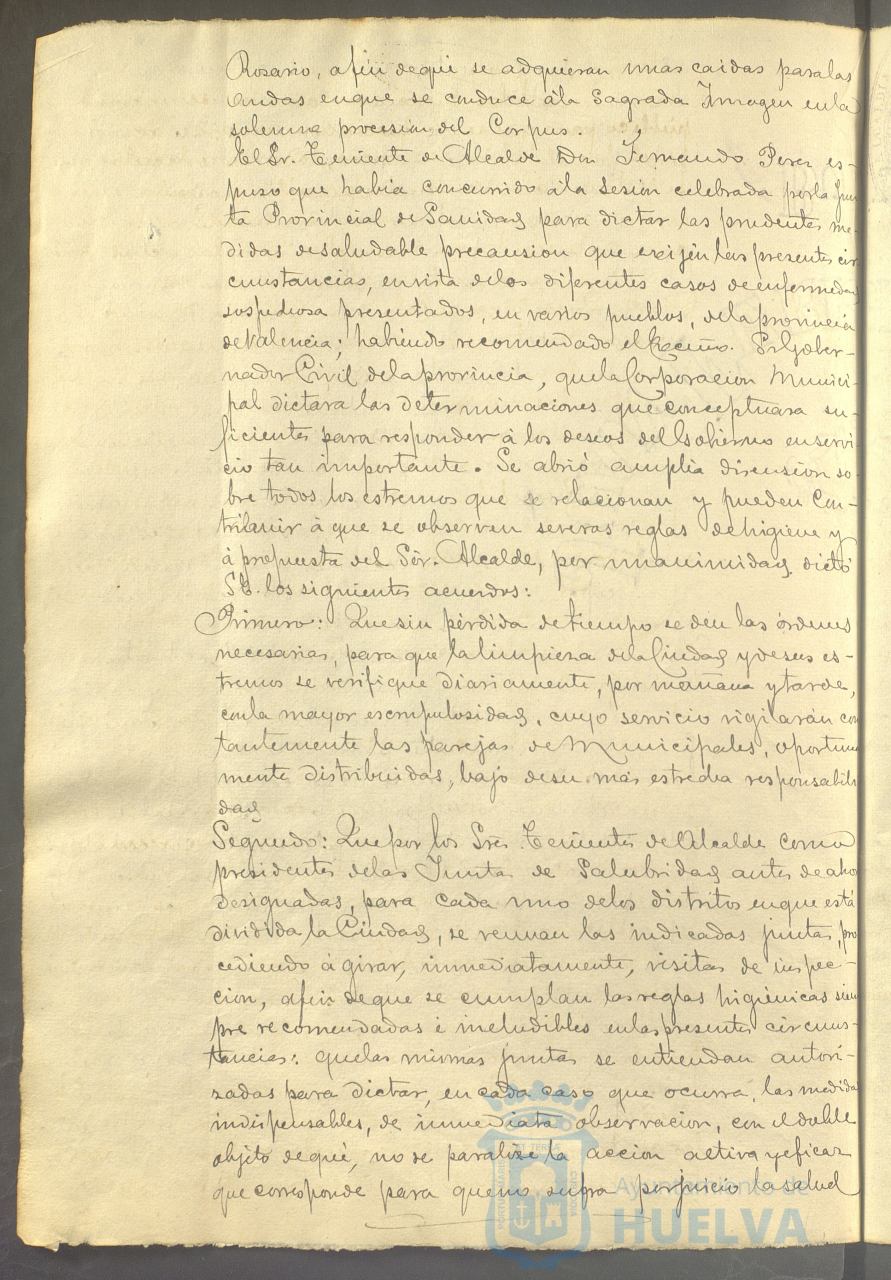 Rosario, afin deque se adquieran unas caidas paralas
Andas enque se conduce ála Sagrada Imagen enla
solemne procesion del Corpus.
El Sr. Teniente de Alcalde Don Fernando Perez es-
puso que habia concurrido ála sesion celebrada porla Jun
ta Provincial de Sanidad para dictar las prudentes me-
didas desaludable precausion que exijen las presentes cir
cunstancias, envista delos diferentes casos de enfermedad
sospechosa presentados, en varios pueblos, dela provincia
de Valencia; habiendo recomendado el Excmo. Sr. Gober-
nador Civil dela provincia, quela Corporacion Munici-
pal dictara las determinaciones que conceptuara su-
ficientes para responder á los deseos del Gobierno enservi-
cio tan importante. Se abrió amplia discusion so-
bre todos los estremos que se relacionan y pueden Con-
tribuir á que se observen severas reglas de higiene y
á propuesta del Sor. Alcalde, por unanimidad, dictó
SE. los siguientes acuerdos:
Primero: Quesin pérdida de tiempo se den las órdenes
necesarias, para que lalimpieza dela Ciudad y desus es-
tremos se verifique diariamente, por mañana y tarde,
conla mayor escrupulosidad, cuyo servicio vigilarán con
tantemente las parejas de Municipales, oportuna
mente distribuidas, bajo desu mas estrecha responsabili
dad
Segundo: Que por los Sres. Tenientes de Alcalde como
presidentes delas Juntas de Salubridad antes de aho
designadas, para cada uno delos distritos enque está
dividida la Ciudad, se reunan las indicadas juntas, pro
cediendo á girar, inmediatamente, visitas de inspec-
cion, afin deque se cumplan las reglas higiénicas siem
pre recomendadas é ineludibles enlas presentes circuns-
tancias: quelas mismas juntas se entiendan autori-
zadas para dictar, en cada caso que ocurra, las medidas
indispensables, de inmediata observacion, con el doble
objeto dequé, no se paralize la accion activa y eficaz
que corresponde para queno sufra perjuicio la salud
Ayuntamiento de
HUELVA